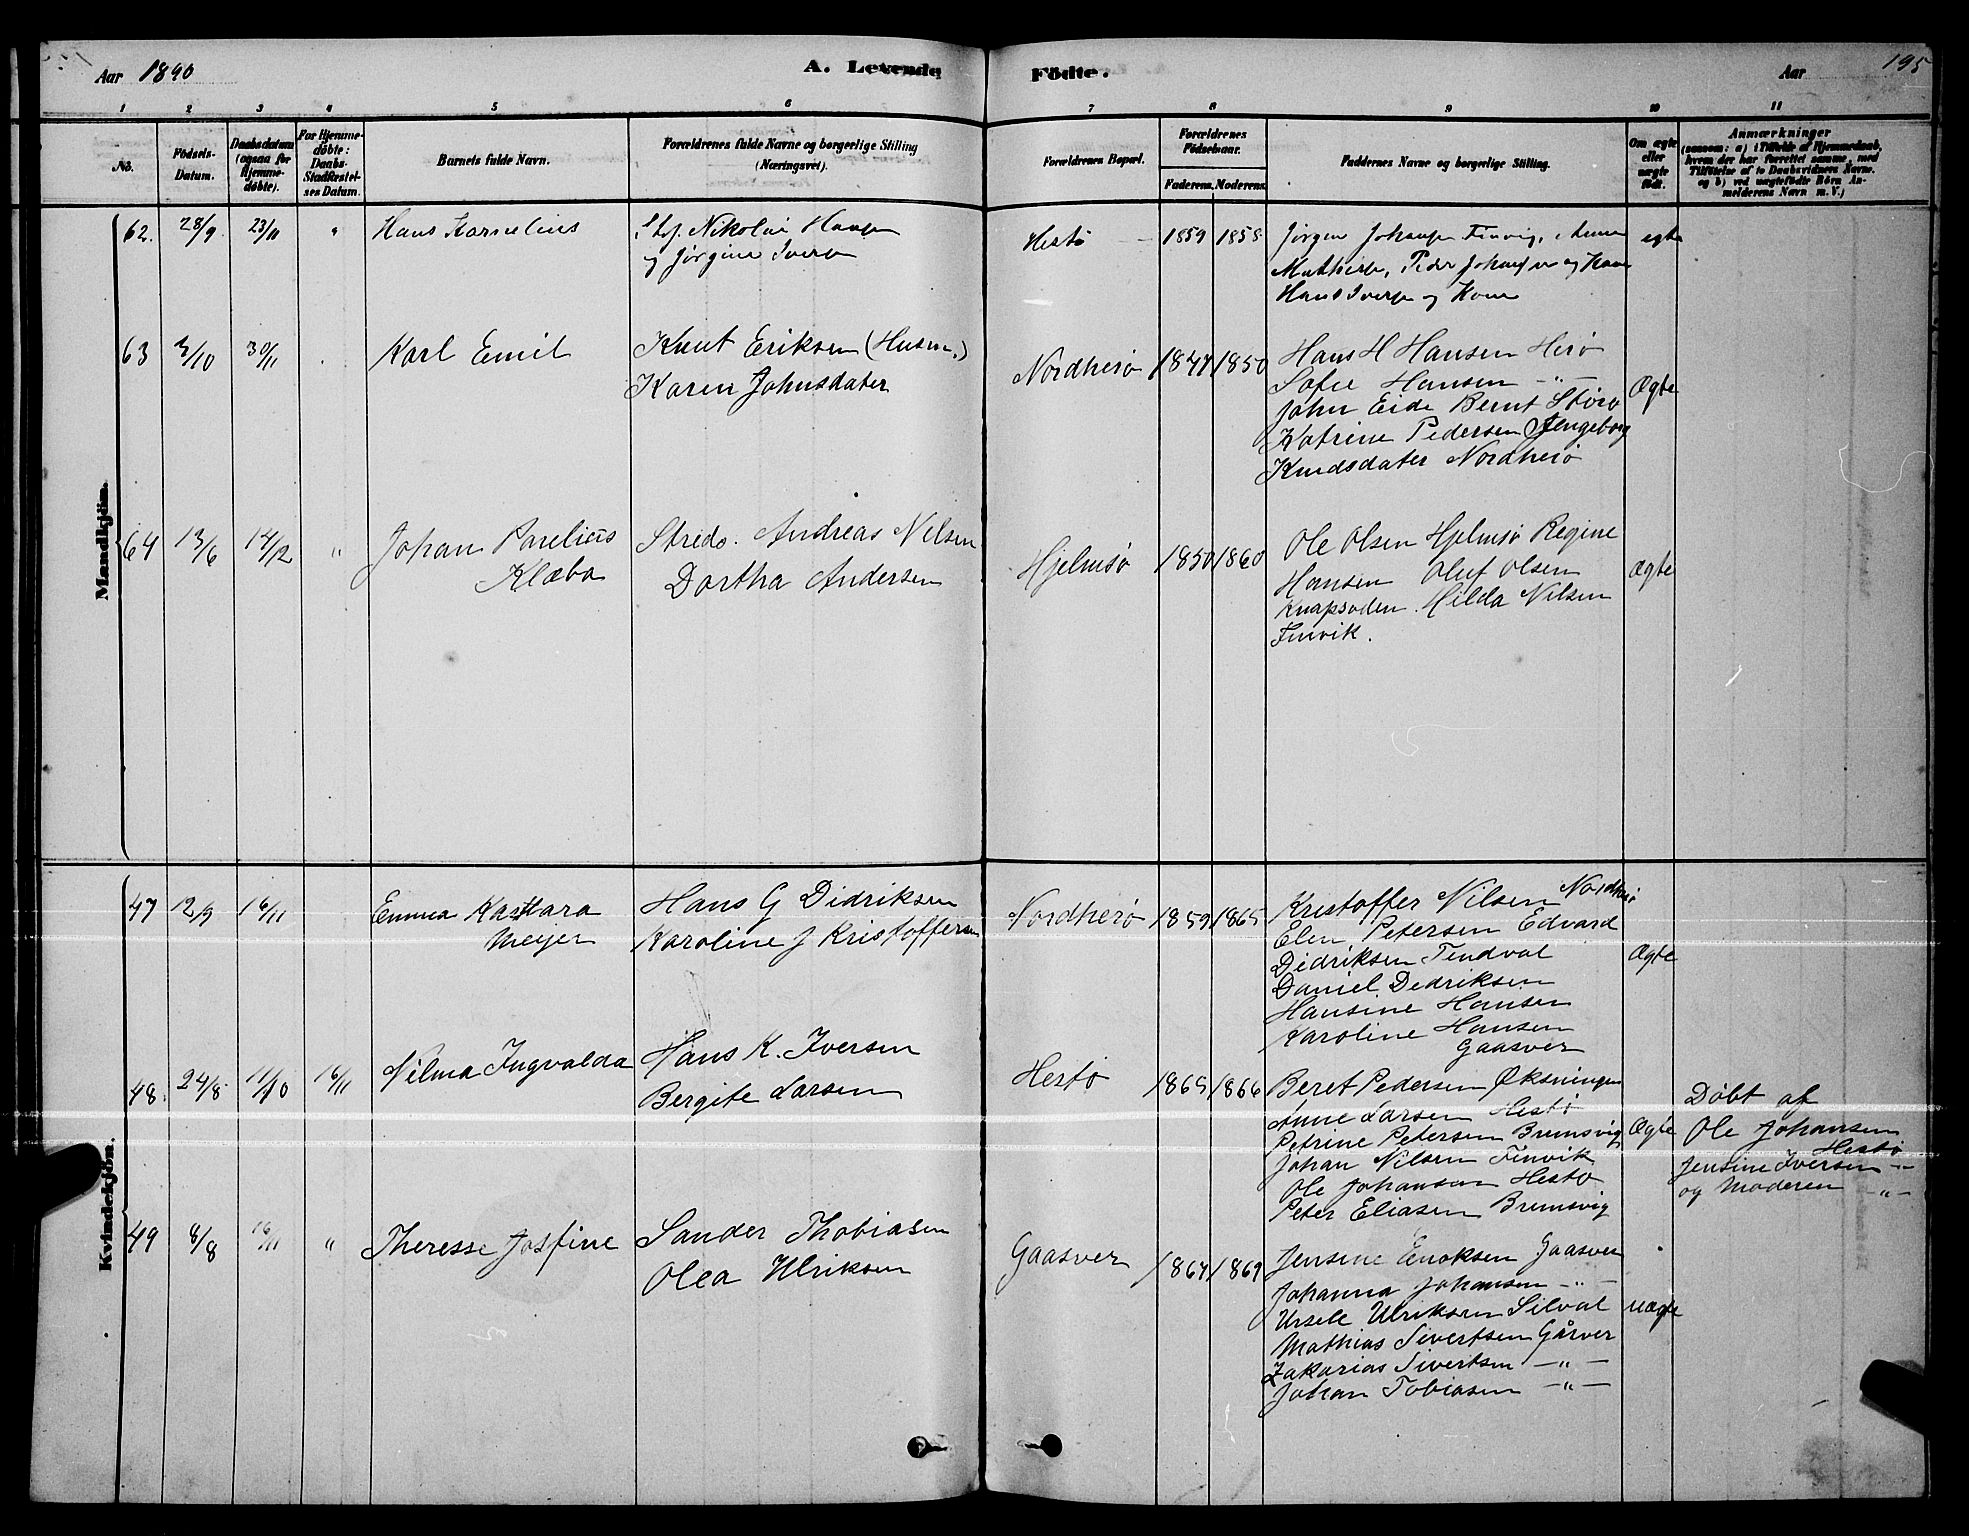 Aar 1890
A. Levende
Födte.
Aar
195
1 2 3 4 5 6 7 8 9 10 11
No.
Födsels-
Datum.
Daabsdatum
(ogsaa for
Hjemme-
döbte).
For Hjemme-
döbte:
Daabs-
Stadfæstel-
ses Datum.
Barnets fulde Navn.
Forældrenes fulde Navne og borgerlige Stilling
(Næringsvei).
Forældrenes Bopæl.
Forældrenes
Födselsaar.
Faderens. Moderens.
Faddernes Navne og borgerlige Stilling.
Om ægte
eller
uægte
födt.
Anmærkninger
(saasom: a) i Tilfælde af Hjemmedaab,
hvem der har forrettet samme, med
Tilföielse af to Daabsvidners Navne.
og b) ved uægtefödte Börn An-
melderens Navn m. V.)
Mandkjön.
62. 28/9 23/11 " Hans Kornelius
Nikolai
og Jørgine
Hestø 1859
Jørgen Finvig,
Peder og
Hans og Kone
egte
63 3/10 30/11 Karl Emil
Knut Eriksen (Husm.)
Karen Johnsdater
Nordherø 1847 1850
Hans H Hansen Herø
Sofie Hansen -"-
John Eide Bernt Störö
Katrine Pedersen
Knudsdater Nordherö
Ægte
64 13/6 14/12 " Johan Parelius
Klæbo
Andreas Nilsen
Dortha Andersen
Hjelmsö 1850 1860
Ole Olsen Hjelmsö Regine
Hansen Oluf Olsen
Hilda Nilsen
Finvik.
Ægte
Kvindekjön.
47 12/9 16/11 Emma
Meyer
Hans G Didriksen
Karoline J Kristoffersen
Nordherø 1859 1865
Kristoffer Nilsen Nordherö
Elen Petersen Edvard
Didriksen Tendval
Daniel Dedriksen
Hansine Hansen
Karoline Hansen
Gaasver
Ægte
48. 24/8 11/10 16/11 Vilma Ingvalda
Hans K. Iversen
Bergite Larsen
Hestö 1865 1866
Beret Pedersen Øksningen
Anne Larsen Hestö
Petrine Petersen Bremsvig
Johan Nilsen Finvik
Ole Johansen Hestö
Peter Eliasen Bremsvig
Ægte
Döbt af
Ole Johansen
Hestö
Jensine Iversen -"-
og Moderen -"-
49 8/8 16/11 " Theresse Josfine
Sander Thobiasen
Olea Ulriksen
Gaasver 1864 1869
Jensine Enoksen Gaasver
Johanna Johansen -"-
Ursele Ulriksen Silval
Mathias Sivertsen Gårver
Zakarias Sivertsen -"-
Johan Tobiasen -"-
uægte